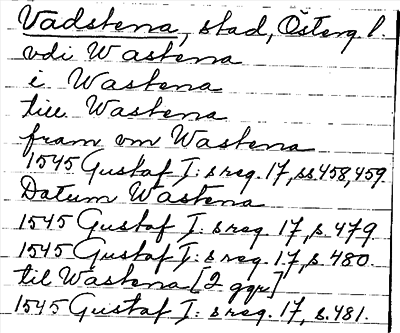 Vadstena, stad, Österg. l.
vdi Wastena
i Wastena
till Wastena
fram om Wastena
1545 Gustaf I: s reg. 17, ss. 458, 459.
Datum Wastena
1545 Gustaf I: s reg. 17, s. 479.
1545 Gustaf I: s reg. 17, s. 480.
til Wastena [2 ggr]
1545 Gustaf I: s reg. 17, s. 481.